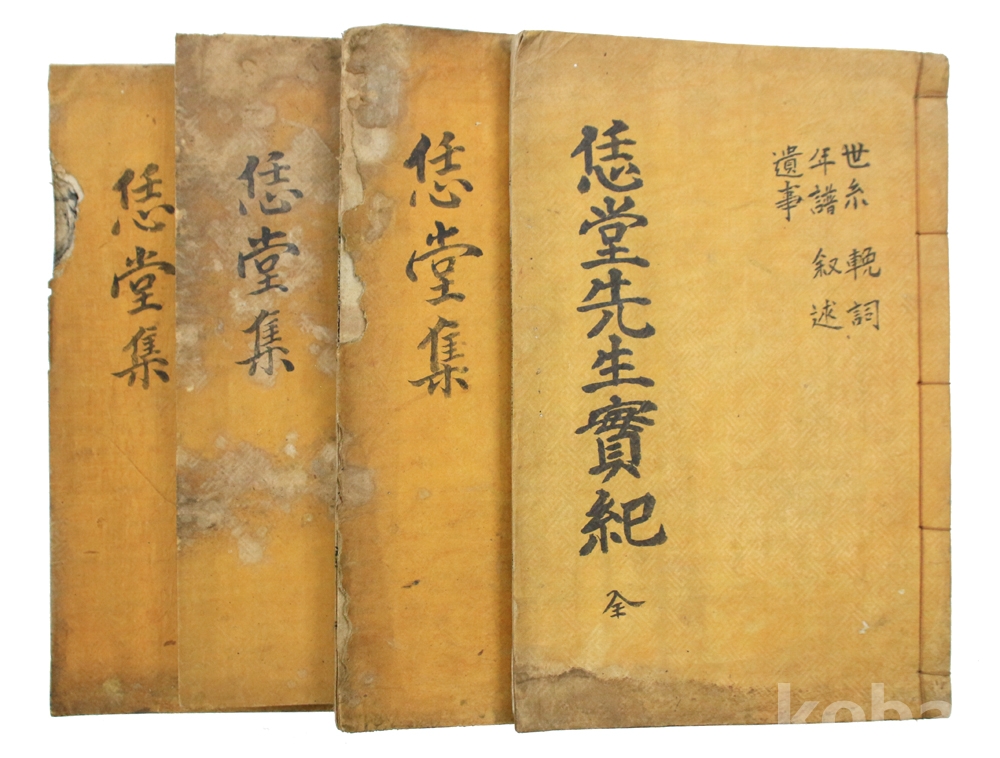 世糸 輓詞
年譜 叙述
遺事
恁堂先生實紀 全
恁堂集
恁堂集
恁堂集
koba